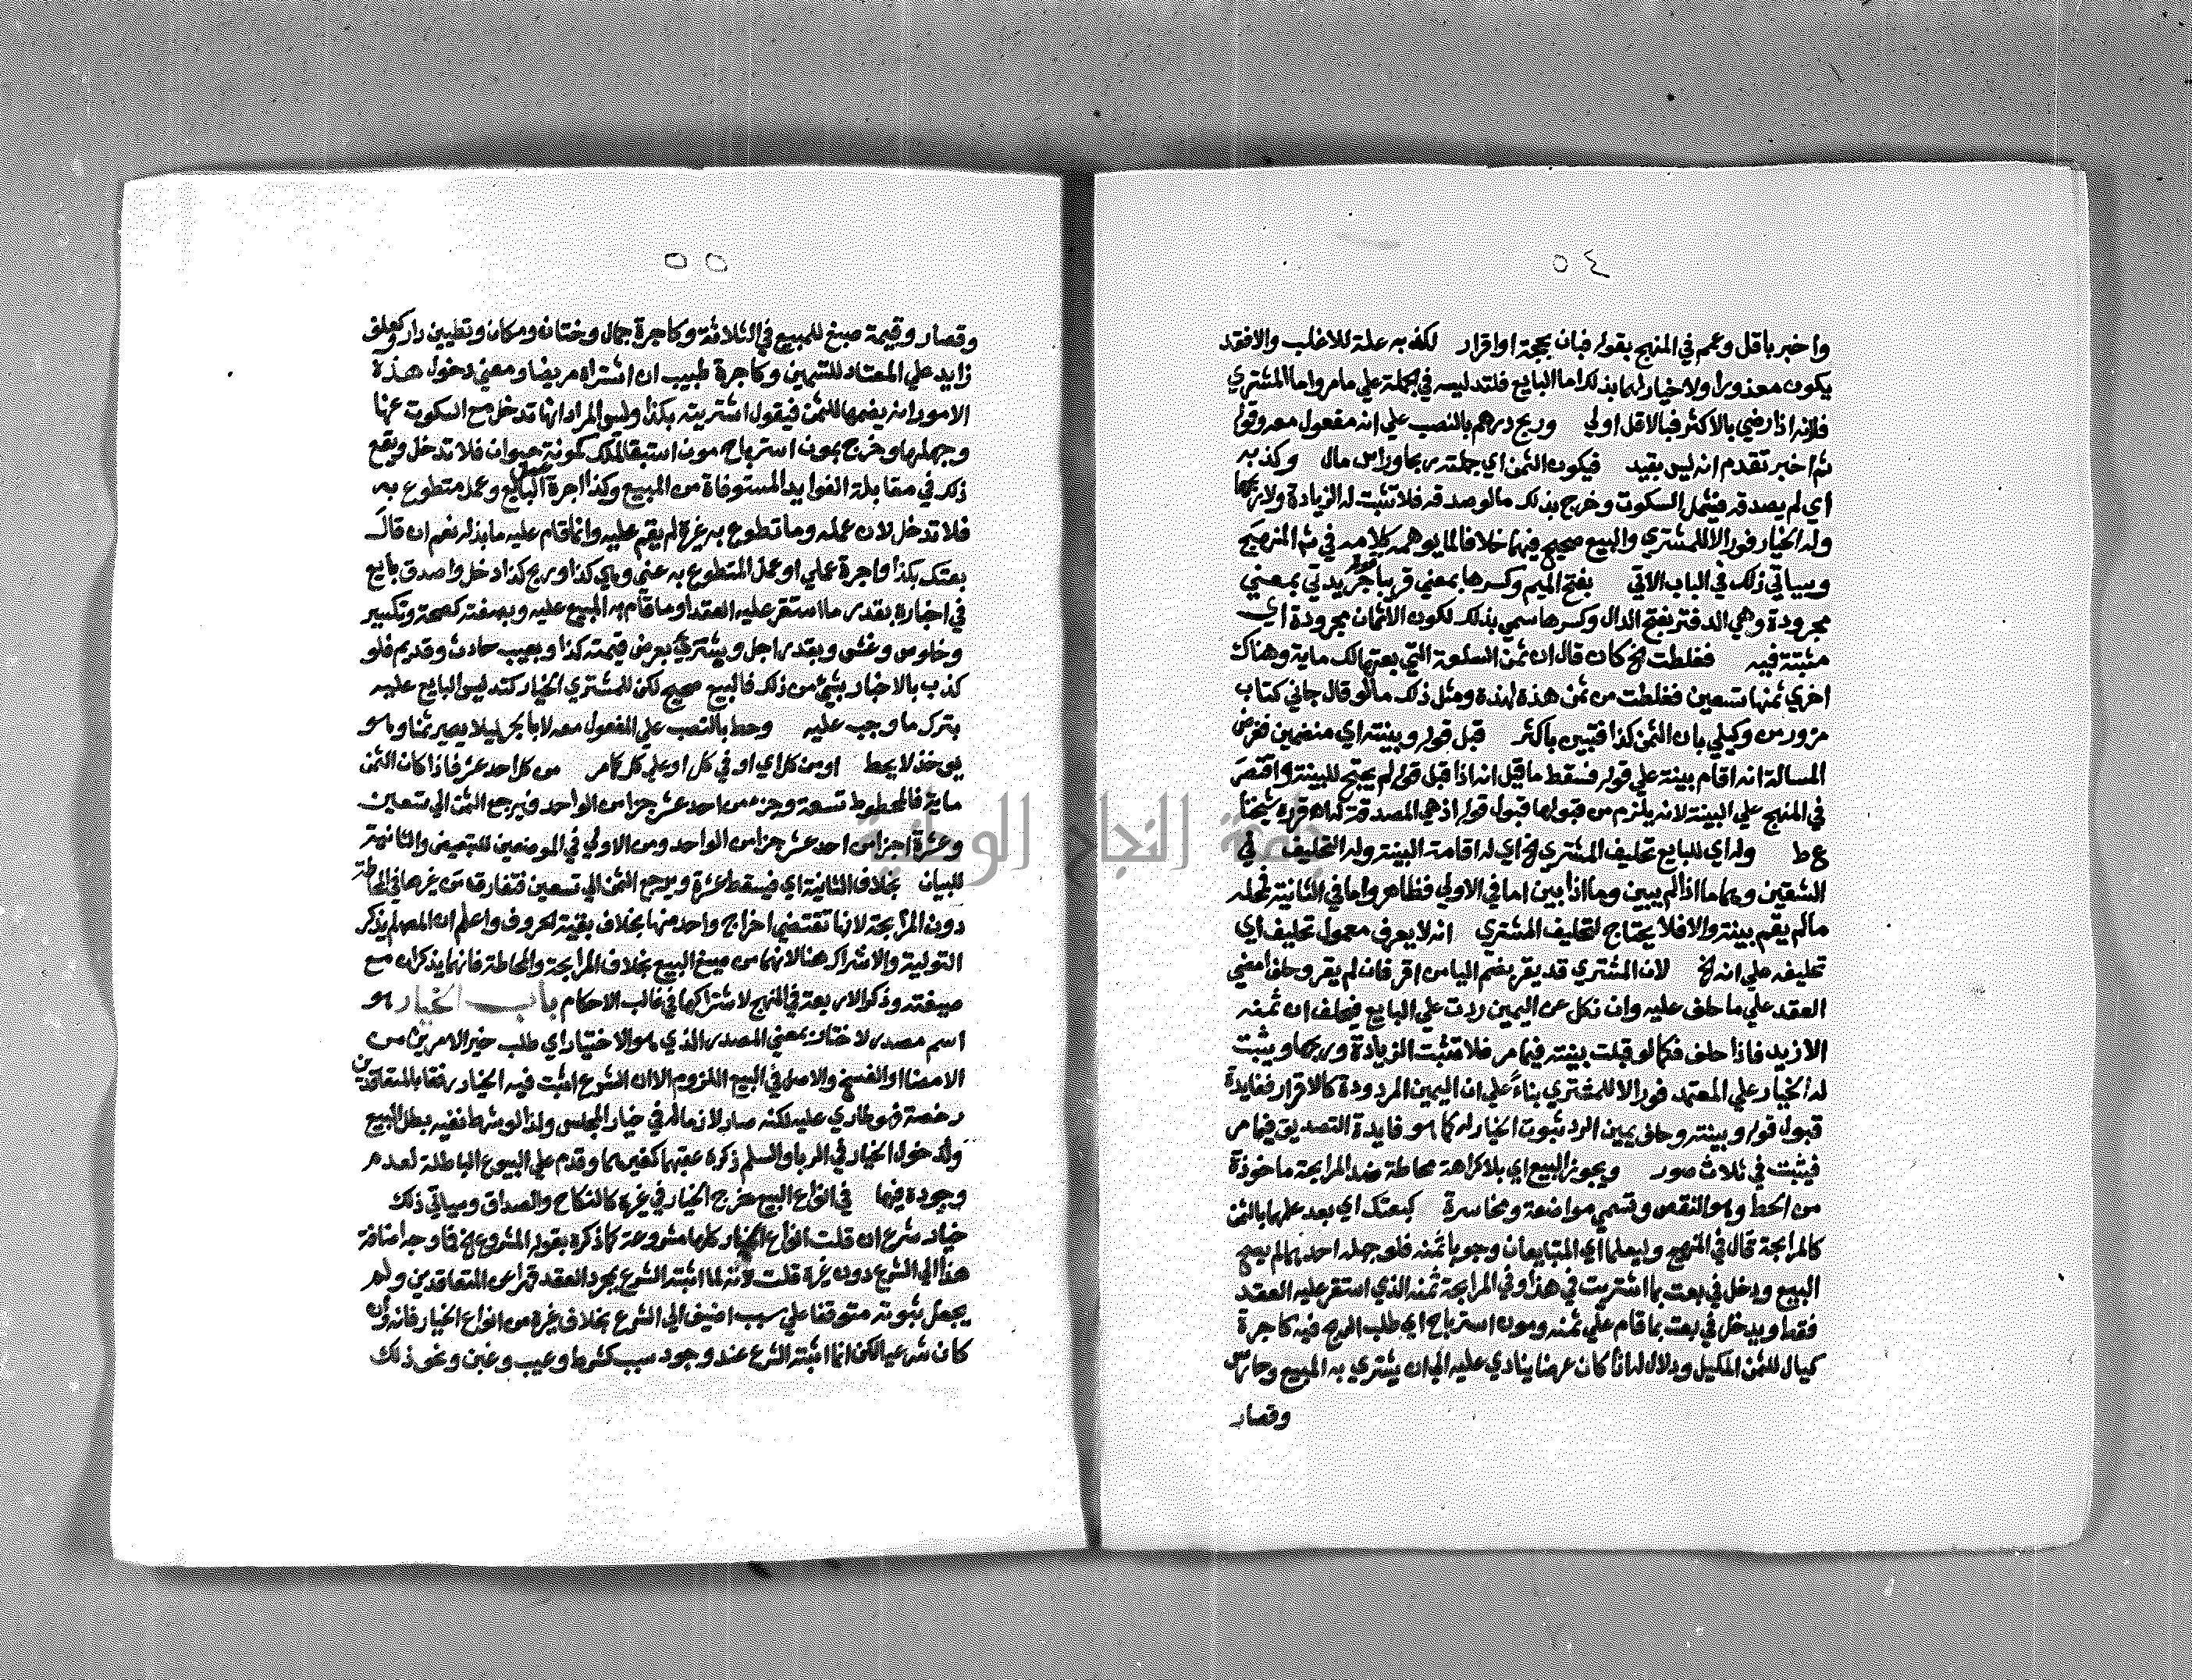 ٥٤
واخبر باقل وعمم في المنهج بقوله فبان بحجة او اقرار لكفه به علة للاغلب والا فقد
يكون معذورا ولا خيار لهما بذلك اما البايع فلتدليسه في الجملة علي ما مر واما المشتري
فلانه اذا رضي بالاكثر فبالاقل اولي وربح درهم بالنصب علي انه مفعول معه وقوله
ثم اخبر تقدم انه ليس بقيد فيكون الثمن اي جملته ربحا وراس مال وكذبه
اي لم يصدقه فيشمل السكوت وخرج بذلك مالو صدقه فلا تثبت له الزيادة ولا ربحها
وله الخيار فورا لا للمشتري والبيع صحيح فيهما خلافا لما يوهمه كلامه في شم المنهج
وسياتي ذلك في الباب الاتي بفتح الميم وكسرها بمعني قريبا جريدتي بمعني
مجرودة وهي الدفتر بفتح الدال وكسرها سمي بذلك لكون الاثمان مجرودة اي
مثبتة فيه فغلطت الخ كان قال ان ثمن السلعة التي بعتها لك ماية وهناك
اخري ثمنها تسعين فغلطت من ثمن هذه لهذه ومثل ذلك مالو قال جاني كتاب
مزور من وكيلي بان الثمن كذا فتبين باكثر قبل قوله وبينته اي منضمين ففرض
المسالة انه اقام بينة علي قوله فسقط ما قيل انه اذا قبل قوله لم يحتج للبينة واقتصر
في المنهج علي البينة لانه يلزم من قبولها قبول قوله اذ هي المصدقة له اه قرره شيخنا
ع ط وله اي للبايع تحليف المشتري الخ اي له اقامة البينة وله التحليف في
الشقين وهما ما اذا لم يبين وما اذا بين اما في الاولي فظاهر واما في الثانية فمحله
مالم يقم بينة والا فلا يحتاج لتحليف المشتري انه لا يعرف معمول تحليف اي
تحليفه علي انه الخ لان المشتري قد يقر بضم اليا من اقر فان لم يقر وحلف امضي
العقد علي ما حلف عليه وان نكل عن اليمين ردت علي البايع فيحلف ان ثمنه
الازيد فاذا حلف فكما لو قبلت بينته فيما مر فلا تثبت الزيادة وربحها ويثبت
له الخيار علي المعتمد فورا لا للمشتري بناءً علي ان اليمين المردودة كالاقرار ففايدة
قبول قوله وبينته وحلف يمين الرد ثبوت الخيار له كما هو فايدة التصديق فيما مر
فيثبت في ثلاث صور ويجوز البيع اي بلا كراهة محاطة ضد المرابحة ماخوذة
من الحط وهو النقص وتسمي مواضعة ومخاسرة كبعتك اي بعد علمها بالثمن
كالمرابحة قال في المنهج وليعلما اي المتبايعان وجوبا ثمنه فلو جهله احدهما لم يصح
البيع ودخل في بعت بما اشتريت في هذا وفي المرابحة ثمنه الذي استقر عليه العقد
فقط ويدخل في بعت بما قام علي ثمنه ومون استرباح اي طلب الربح فيه كاجرة
كيال للثمن المكيل ودلال له اذا كان عرضا ينادي عليه الي ان يشتري به المبيع وحارس
وقصار
٥٥
وقصار وقيمة صبغ للمبيع في الثلاثة وكاجرة جمال وختان ومكان وتطيين دار وكعلف
زايد علي المعتاد للتسمين وكاجرة طبيب ان اشتراه مريضا ومعني دخول هذه
الامور انه يضمها للثمن فيقول اشتريته بكذا وليس المراد انها تدخل مع السكوت عنها
وجهلها وخرج بمون استرباح مون استبقا الملك كمونة حيوان فلا تدخل ويقع
ذلك في مقابلة الفوايد المستوفاة من المبيع وكذا اجرة عمل البايع وعمل متطوع به
فلا تدخل لان عمله وما تطوع به غيره لم يقم عليه وانما قام عليه ما بذله نعم ان قال
بعتك بكذا واجرة عملي او عمل المتطوع به عني وهي كذا وربح كذا دخل واصدق بايع
في اخباره بقدر ما استقر عليه العقد او ما قام به المبيع عليه وبصفته كصحة وتكسير
وخلوص وغش وبقدر اجل وبشتري بعرض قيمته كذا وبعيب حادث وقديم فلو
كذب بالاخبار بشئ من ذلك فالبيع صحيح لكن للمشتري الخيار كتدليس البايع عليه
بترك ما وجب عليه وحط بالنصب علي المفعول معه لا بالجر ليلا يصير ثمنا وهو
يوخذ لا يحط او من كل اي او في كل او علي كل كامر من كل احد عشر فاذا كان الثمن
ماية فالمحطوط تسعة وجزء من احد عشر جزا من الواحد فيرجع الثمن الي تسعين
وعشرة اجزا من احد عشر جزا من الواحد ومن الاولي في الموضعين للتبعيض والثانية
للبيان بخلاف الثانية اي فيسقط عشرة ويرجع الثمن الي تسعين فتفارق من غيرها في المحاطة
دون المرابحة لانها تقتضي اخراج واحد منها بخلاف بقية الحروف واعلم ان المص لم يذكر
التولية والاشراك هنا لانهما من صيغ البيع بخلاف المرابحة والمحاطة فانهما يذكران مع
صيغته وذكر الاربعة في المنهج لاشتراكها في غالب الاحكام باب الخيار هو
اسم مصدر لاختار بمعني المصدر الذي هو الاختيار اي طلب خير الامرين من
الامضا او الفسخ والاصل في البيع اللزوم الا ان الشرع اثبت فيه الخيار رفقا بالمتعاقدين
رخصة فهو طاري عليه لكنه صار لازما له في خيار المجلس ولذا لو شرط نفيه بطل البيع
ولدخول الخيار في الربا والسلم ذكره عقبها كغيرهما وقدم علي البيوع الباطلة لعدم
وجوده فيها في انواع البيع خرج الخيار في غيره كالنكاح والصداق وسياتي ذلك
خيار شرع ان قلت انواع الخيار كلها مشروعة كما ذكره بقوله المشروع الخ فما وجه اضافة
هذا الي الشرع دون غيره قلت لانه لما اثبته الشرع بمجرد العقد قهرا عن المتعاقدين ولم
يجعل ثبوته متوقفا علي سبب اضيف الي الشرع بخلاف غيره من انواع الخيار فانه وان
كان شرعيا لكن انما اثبته الشرع عند وجود سبب كشرط وعيب وغبن ونحو ذلك